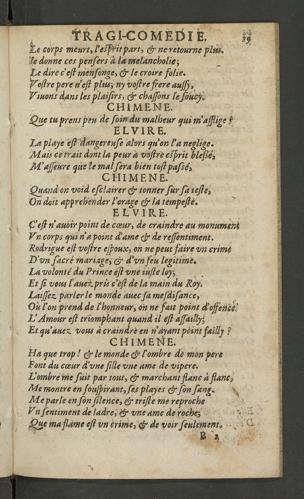 TRAGI-COMEDIE.
39
Le corps meurt, l'esprit part, & ne retourne plus.
Ie donne ces pensers à la melancholie;
Le dire c'est mensonge, & le croire folie.
Vostre pere n'est plus, ny vostre frere aussi,
Viuons dans les plaisirs, & chassons le soucy.
CHIMENE.
Que tu prens peu de soin du malheur qui m'afflige?
ELVIRE.
La playe est dangereuse alors qu'on l'a neglige.
Mais ce trait dont la peur à vostre esprit blessé,
M'asseure que le mal sera bien tost passé,
CHIMENE.
Quand on void esclairer & tonner sur sa teste,
On doit apprehender l'orage & la tempeste.
ELVIRE.
C'est n'auoir point de cœur, de craindre au monument
Vn corps qui n'a point d'ame & de ressentiment.
Rodrigue est vostre espoux, on ne peut faire vn crime
D'vn sacré mariage, & d'vn feu legitime.
La volonté du Prince est vne iuste loy,
Et si vous l'auez pris c'est de la main du Roy.
Laissez parler le monde auec sa mesdisance,
Où l'on prend de l'honneur, on ne fait point d'offence.
L'Amour est triomphant quand il est assailly;
Et qu'auez vous à craindre en n'ayant point failly?
CHIMENE.
Ha que trop! & le monde & l'ombre de mon pere
Font du cœur d'vne fille vne ame de vipere.
L'ombre me suit par tout, & marchant flanc à flanc,
Me montre en souspirant, ses playes & son sang.
Me parle en son silence, & triste me reproche
Vn sentiment de ladre, & vne ame de roche;
Que ma flame est vn crime, & de voir seulement,
B 2